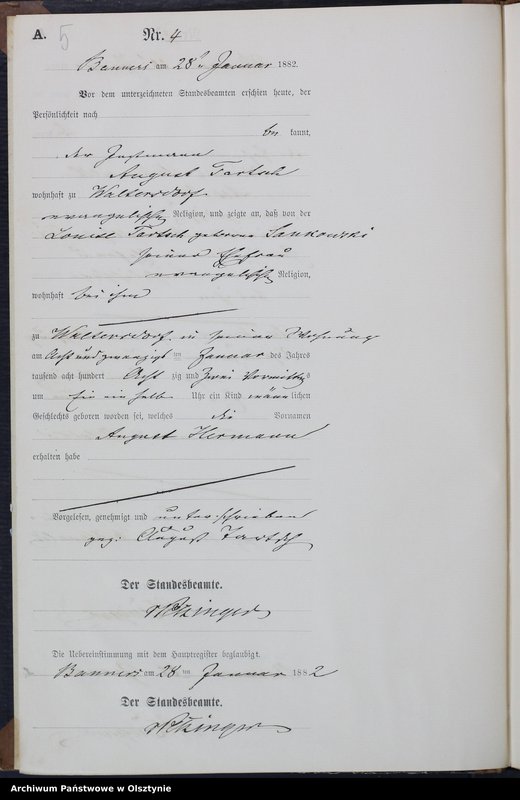 A. 5 Nr. 4
Banners am 28ten Januar 1882.
Vor dem unterzeichneten Standesbeamten erschien heute, der
Persönlichkeit nach
be kannt,
der Instmann
August Tartsch
wohnhaft zu Waltersdorf
evangelischer Religion, und zeigte an, daß von der
Louise Tartsch geborene Sankowski
seiner Ehefrau
evangelischer Religion,
wohnhaft bei ihm
zu Waltersdorf in seiner Wohnung
am Acht und zwanzigsten Januar des Jahres
tausend acht hundert Acht zig und zwei Vormittags
um Uhr ein Kind männlichen
Geschlechts geboren worden sei, welches die Vornamen
August Hermann
erhalten habe
Vorgelesen, genehmigt und unterschrieben
gez: August Tartsch
Der Standesbeamte.
Die Uebereinstimmung mit dem Hauptregister beglaubigt.
Banners am 28ten Januar 1882
Der Standesbeamte.
Archiwum Państwowe w Olsztynie